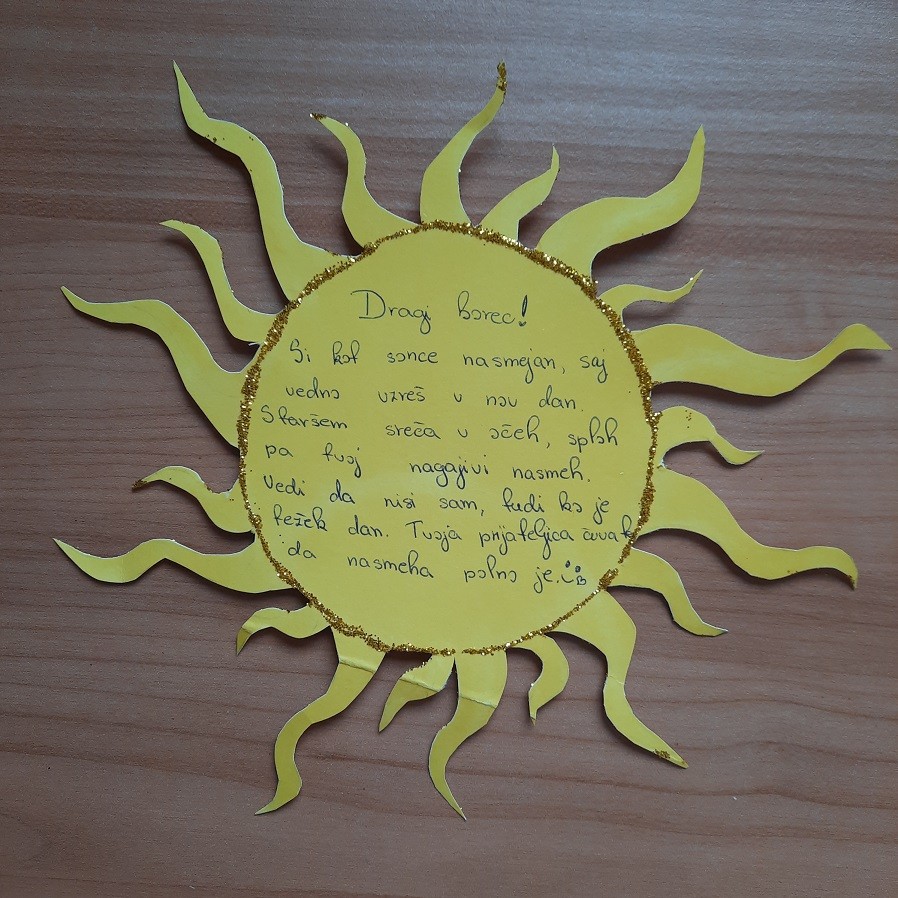 Dragi borec!
Si kot sonce nasmejan, saj
vedno uzreš v nov dan.
Staršem sreča v očeh, sploh
pa tvoj nagajivi nasmeh.
Vedi da nisi sam, tudi ko je
težek dan. Tvoja prijateljica čuva te
da nasmeha polno je.